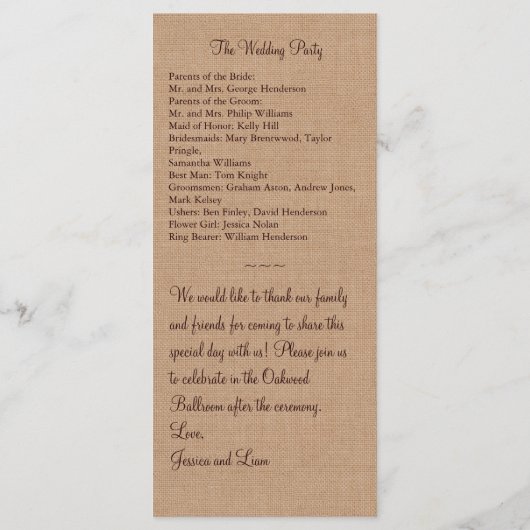 The Wedding Party
Parents of the Bride:
Mr. and Mrs. George Henderson
Parents of the Groom:
Mr. and Mrs. Philip Williams
Maid of Honor: Kelly Hill
Bridesmaids: Mary Brentwwod, Taylor
Pringle,
Samantha Williams
Best Man: Tom Knight
Groomsmen: Graham Aston, Andrew Jones,
Mark Kelsey
Ushers: Ben Finley, David Henderson
Flower Girl: Jessica Nolan
Ring Bearer: William Henderson
~~~~
We would like to thank our family
and friends for coming to share this
special day with us! Please join us
to celebrate in the Oakwood
Ballroom after the ceremony.
Love,
Jessica and Liam